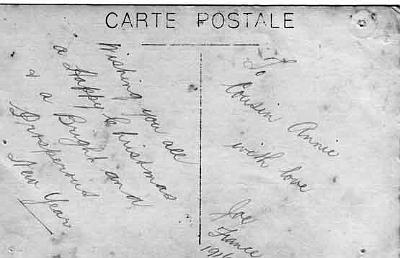 CARTE POSTALE
Wishing you all
a Happy Christmas
& a Bright and
Prosperous
New Year
To
Cousin Annie
with love
Joe
France